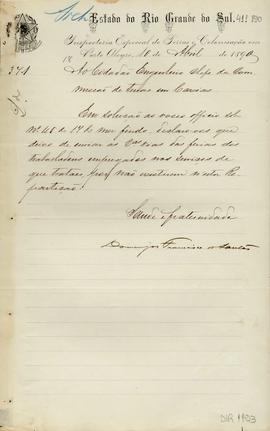 Estado do Rio Grande do Sul.
Inspectoria Especial de Terras e Colonisação em
Porto Alegre, 18 de Abril de 1890
371
Ao Cidadão Engenheiro Chefe da Com
missão de Terras em Caxias
Em solução ao vosso officio
Nº 46 de 17 do mez findo, declaro-vos que
deixo de enviar as
trabalhadores empregados nos serviços de
que trataes, por não existirem n'esta Re
partição.
Saude e fraternidade
Domingos Francisco dos Santos
DIR 1103